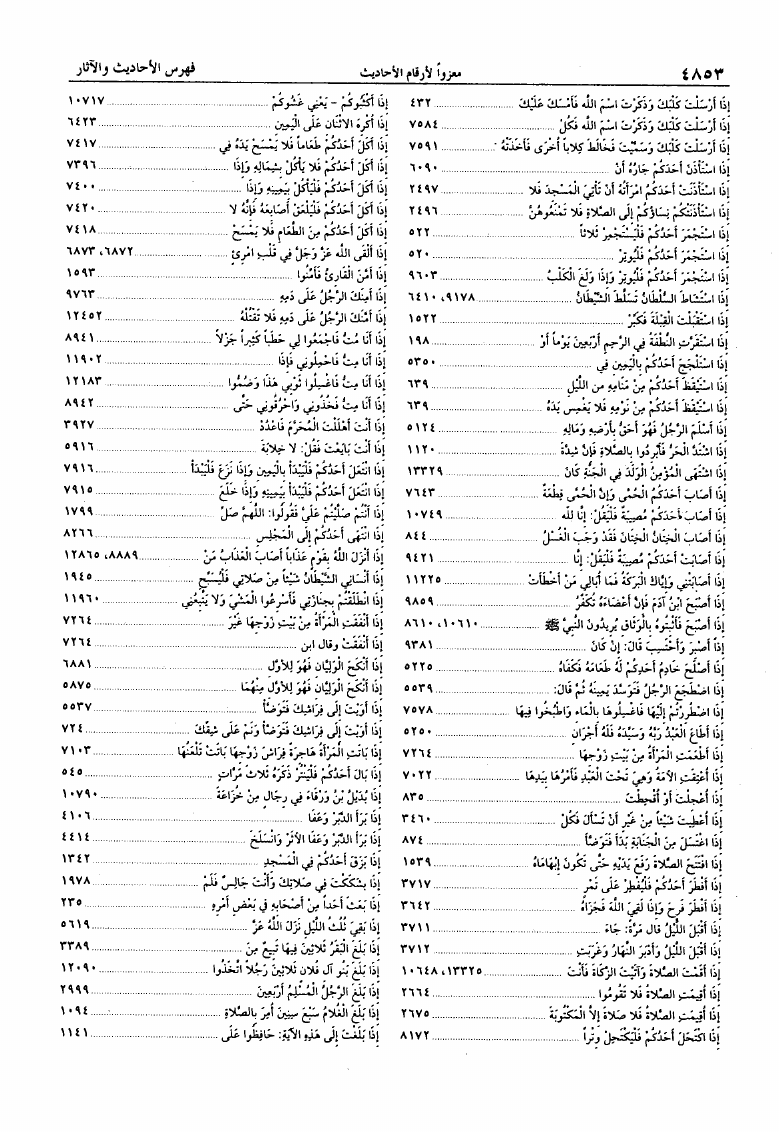 ٤٨٥٣ معزواً لأرقام الأحاديث فهرس الأحاديث والآثار
إِذَا أَرْسَلْتَ كَلْبَكَ وَذَكَرْتَ اسْمَ اللَّه فَأَمْسَكَ عَلَيْكَ ٤٣٢
إِذَا أَرْسَلْتَ كَلْبَكَ وَذَكَرْتَ اسْمَ اللَّه فَكُلْ ٧٥٨٤
إِذَا أَرْسَلْتَ كَلْبَكَ وَسَمَّيْتَ فَخَالَطَ كِلَاباً أُخْرَى فَأَخَذَتْهُ ٧٥٩١
إِذَا اسْتَأْذَنَ أَحَدَكُمْ جَارُهُ أَنْ ٦٠٩٠
إِذَا اسْتَأْذَنَتْ أَحَدَكُمُ امْرَأَتُهُ أَنْ تَأْتِيَ الْمَسْجِدَ فَلا ٢٤٩٧
إِذَا اسْتَأْذَنَكُمْ نِسَاؤُكُمْ إِلَى الصَّلاةِ فَلا تَمْنَعُوهُنَّ ٢٤٩٦
إِذَا اسْتَجْمَرَ أَحَدُكُمْ فَلْيَسْتَجْمِرْ ثَلاثاً ٥٢٢
إِذَا اسْتَجْمَرَ أَحَدُكُمْ فَلْيُوتِرْ ٥٢٠
إِذَا اسْتَجْمَرَ أَحَدُكُمْ فَلْيُوتِرْ وَإِذَا وَلَغَ الْكَلْبُ ٩٦٠٣
إِذَا اسْتَشَاطَ السُّلْطَانُ تَسَلَّطَ الشَّيْطَانُ ٩١٧٨، ٦٤١٠
إِذَا اسْتَقْبَلْتَ الْقِبْلَةَ فَكَبِّرْ ١٥٢٢
إِذَا اسْتَقَرَّتِ النُّطْفَةُ فِي الرَّحِمِ أَرْبَعِينَ يَوْماً أَوْ ١٩٨
إِذَا اسْتَلْجَجَ أَحَدُكُمْ بِالْيَمِينِ فِي ٥٣٥٠
إِذَا اسْتَيْقَظَ أَحَدُكُمْ مِنْ مَنَامِهِ مِنَ اللَّيْلِ ٦٣٩
إِذَا اسْتَيْقَظَ أَحَدُكُمْ مِنْ نَوْمِهِ فَلا يَغْمِس يَدَهُ ٦٣٩
إِذَا أَسْلَمَ الرَّجُلُ فَهُوَ أَحَقُّ بِأَرْضِهِ وَمَالِهِ ٥١٢٤
إِذَا اشْتَدَّ الْحَرُّ فَأَبْرِدُوا بِالصَّلاةِ فَإِنَّ شِدَّةَ ١١٢٠
إِذَا اشْتَهَى الْمُؤْمِنُ الْوَلَدَ فِي الْجَنَّةِ كَانَ ١٣٣٢٩
إِذَا أَصَابَ أَحَدَكُمُ الْحُمَّى وَإِنَّ الْحُمَّى قِطْعَةٌ ٧٦٤٣
إِذَا أَصَابَ أَحَدَكُمْ مُصِيبَةٌ فَلْيَقُلْ: إِنَّا لله ١٠٧٤٩
إِذَا أَصَابَ الْخِتَانُ الْخِتَانَ فَقَدْ وَجَبَ الْغُسْلُ ٨٤٤
إِذَا أَصَابَتْ أَحَدَكُمْ مُصِيبَةٌ فَلْيَقُلْ: إِنَّا ٩٤٢١
إِذَا أَصَابَتْنِي وَإِيَّاكِ الْبَرَكَةُ فَمَا أُبَالِي مَنْ أَخْطَأَتْ ١١٢٢٥
إِذَا أَصْبَحَ ابْنُ آدَمَ فَإِنَّ أَعْضَاءَهُ تُكَفِّرُ ٩٨٥٩
إِذَا أَصْبَحَ فَأَثْبِتُوهُ بِالْوَثَاقِ يُرِيدُونَ النَّبِيَّ ﷺ ١٠٦١٠، ٨٦١٠
إِذَا أَصْبَرَ وَأَحْتَسِبُ قَالَ: إِنْ كَانَ ٩٣٨١
إِذَا أَصْلَحَ خَادِمُ أَحَدِكُمْ لَهُ طَعَامَهُ فَكَفَاهُ ٥٢٢٥
إِذَا اضْطَجَعَ الرَّجُلُ فَتَوَسَّدَ يَمِينَهُ ثُمَّ قَالَ: ٥٥٣٩
إِذَا اضْطُرِرْتُمْ إِلَيْهَا فَاغْسِلُوهَا بِالْمَاءِ وَاطْبُخُوا فِيهَا ٧٥٧٨
إِذَا أَطَاعَ الْعَبْدُ رَبَّهُ وَسَيِّدَهُ فَلَهُ أَجْرَانِ ٥٢٥٠
إِذَا أَطْعَمَتِ الْمَرْأَةُ مِنْ بَيْتِ زَوْجِهَا ٧٢٦٤
إِذَا أُعْتِقَتِ الْأَمَةُ وَهِيَ تَحْتَ الْعَبْدِ فَأَمْرُهَا بِيَدِهَا ٧٠٢٢
إِذَا أُعْجِلْتَ أَوْ أُقْحِطْتَ ٨٣٥
إِذَا أُعْطِيتَ شَيْئاً مِنْ غَيْرِ أَنْ تَسْأَلَ فَكُلْ ٣٤٦٠
إِذَا اغْتَسَلَ مِنَ الْجَنَابَةِ بَدَأَ فَتَوَضَّأَ ٨٧٤
إِذَا افْتَتَحَ الصَّلاةَ رَفَعَ يَدَيْهِ حَتَّى تَكُونَ إِبْهَامَاهُ ١٥٣٩
إِذَا أَفْطَرَ أَحَدُكُمْ فَلْيُفْطِرْ عَلَى تَمْرٍ ٣٧١٧
إِذَا أَفْطَرَ فَرِحَ وَإِذَا لَقِيَ اللَّهَ فَجَزَاهُ ٣٦٤٢
إِذَا أَقْبَلَ اللَّيْلُ قال مَرَّةً: جَاءَ ٣٧١١
إِذَا أَقْبَلَ اللَّيْلُ وَأَدْبَرَ النَّهَارُ وَغَرَبَتِ ٣٧١٢
إِذَا أَقَمْتَ الصَّلاةَ وَآتَيْتَ الزَّكَاةَ فَأَنْتَ ١٣٣٢٥، ١٠٦٤٨
إِذَا أُقِيمَتِ الصَّلاةُ فَلا تَقُومُوا ٢٦٦٤
إِذَا أُقِيمَتِ الصَّلاةُ فَلا صَلاةَ إِلاَّ الْمَكْتُوبَةُ ٢٦٧٥
إِذَا اكْتَحَلَ أَحَدُكُمْ فَلْيَكْتَحِلْ وِتْراً ٨١٧٢
إِذَا أَكْثَبُوكُمْ - يَعْنِي غَشُوكُمْ ١٠٧١٧
إِذَا أُكْرِهَ الاثْنَانِ عَلَى الْيَمِينِ ٦٤٢٣
إِذَا أَكَلَ أَحَدُكُمْ طَعَاماً فَلا يَمْسَحْ يَدَهُ فِي ٧٤١٧
إِذَا أَكَلَ أَحَدُكُمْ فَلا يَأْكُلْ بِشِمَالِهِ وَإِذَا ٧٣٩٦
إِذَا أَكَلَ أَحَدُكُمْ فَلْيَأْكُلْ بِيَمِينِهِ وَإِذَا ٧٤٠٠
إِذَا أَكَلَ أَحَدُكُمْ فَلْيَلْعَقْ أَصَابِعَهُ فَإِنَّهُ لا ٧٤٢٠
إِذَا أَكَلَ أَحَدُكُمْ مِنَ الطَّعَامِ فَلا يَمْسَحْ ٧٤١٨
إِذَا أَلْقَى اللَّه عَزَّ وَجَلَّ فِي قَلْبِ امْرِئٍ ٦٨٧٢، ٦٨٧٣
إِذَا أَمَّنَ الْقَارِئُ فَأَمِّنُوا ١٥٩٣
إِذَا أَمِنَكَ الرَّجُلُ عَلَى دَمِهِ ٩٧٦٣
إِذَا أَمَّنَكَ الرَّجُلُ عَلَى دَمِهِ فَلا تَقْتُلْهُ ١٢٤٥٢
إِذَا أَنَا مُتُّ فَاجْمَعُوا لِي حَطَباً كَثِيراً جَزْلاً ٨٩٤١
إِذَا أَنَا مِتُّ فَاحْمِلُونِي فَإِذَا ١١٩٠٢
إِذَا أَنَا مِتُّ فَاغْسِلُوا ثَوْبَيَّ هَذَا وَضُمُّوا ١٢١٨٣
إِذَا أَنَا مِتُّ فَخُذُونِي وَاحْرُقُونِي حَتَّى ٨٩٤٢
إِذَا أَنْتَ أَهْلَلْتَ الْمُحَرَّمَ فَاعْدُدْ ٣٩٢٧
إِذَا أَنْتَ بَايَعْتَ فَقُلْ: لا خِلابَةَ ٥٩١٦
إِذَا انْتَعَلَ أَحَدُكُمْ فَلْيَبْدَأْ بِالْيَمِينِ وَإِذَا نَزَعَ فَلْيَبْدَأْ ٧٩١٦
إِذَا انْتَعَلَ أَحَدُكُمْ فَلْيَبْدَأْ بِيَمِينِهِ وَإِذَا خَلَعَ ٧٩١٥
إِذَا أَنْتُمْ صَلَّيْتُمْ عَلَيَّ فَقُولُوا: اللَّهُمَّ صَلِّ ١٧٩٩
إِذَا انْتَهَى أَحَدُكُمْ إِلَى الْمَجْلِسِ ٨٢٦٦
إِذَا أَنْزَلَ اللَّهُ بِقَوْمٍ عَذَاباً أَصَابَ الْعَذَابُ مَنْ ٨٨٨٩، ١٢٨٦٥
إِذَا أَنْسَانِي الشَّيْطَانُ شَيْئاً مِنْ صَلاتِي فَلْيُسَبِّحِ ١٩٤٥
إِذَا انْطَلَقْتُمْ بِجِنَازَتِي فَأَسْرِعُوا الْمَشْيَ وَلا يَتْبَعُنِي ١١٩٦٠
إِذَا أَنْفَقَتِ الْمَرْأَةُ مِنْ بَيْتِ زَوْجِهَا غَيْرَ ٧٢٦٤
إِذَا أَنْفَقَتْ وقال ابن ٧٢٦٤
إِذَا أَنْكَحَ الْوَلِيَّانِ فَهُوَ لِلْأَوَّلِ ٦٨٨١
إِذَا أَنْكَحَ الْوَلِيَّانِ فَهُوَ لِلْأَوَّلِ مِنْهُمَا ٥٨٧٥
إِذَا أَوَيْتَ إِلَى فِرَاشِكَ فَتَوَضَّأْ ٥٥٣٧
إِذَا أَوَيْتَ إِلَى فِرَاشِكَ فَتَوَضَّأْ وَنَمْ عَلَى شِقِّكَ ٧٢٤
إِذَا بَاتَتِ الْمَرْأَةُ هَاجِرَةً فِرَاشَ زَوْجِهَا بَاتَتْ تَلْعَنُهَا ٧١٠٣
إِذَا بَالَ أَحَدُكُمْ فَلْيَنْتُرْ ذَكَرَهُ ثَلاثَ مَرَّاتٍ ٥٤٥
إِذَا بُدَيْلُ بْنُ وَرْقَاءَ فِي رِجَالٍ مِنْ خُزَاعَةَ ١٠٧٩٠
إِذَا بَرَأَ الدَّبَرُ وَعَفَا ٤١٠٦
إِذَا بَرَأَ الدَّبَرُ وَعَفَا الأَثَرُ وَانْسَلَخَ ٤٤١٤
إِذَا بَزَقَ أَحَدُكُمْ فِي الْمَسْجِدِ ١٣٤٢
إِذَا بِشَكَكْتَ فِي صَلاتِكَ وَأَنْتَ جَالِسٌ فَلَمْ ١٩٧٨
إِذَا بَعَثَ أَحَداً مِنْ أَصْحَابِهِ فِي بَعْضِ أَمْرِهِ ٢٣٥
إِذَا بَقِيَ ثُلُثُ اللَّيْلِ نَزَلَ اللَّهُ عَزَّ ٥٦١٩
إِذَا بَلَغَ الْبَقَرُ ثَلاثِينَ فِيهَا تَبِيعٌ مِنَ ٣٣٨٩
إِذَا بَلَغَ بَنُو آلِ فُلانٍ ثَلاثِينَ رَجُلاً اتَّخَذُوا ١٢٠٩٠
إِذَا بَلَغَ الرَّجُلُ الْمُسْلِمُ أَرْبَعِينَ ٢٩٩٩
إِذَا بَلَغَ الْغُلامُ سَبْعَ سِنِينَ أُمِرَ بِالصَّلاةِ ١٠٩٤
إِذَا بَلَغْتَ إِلَى هَذِهِ الآيَةِ: حَافِظُوا عَلَى ١١٤١